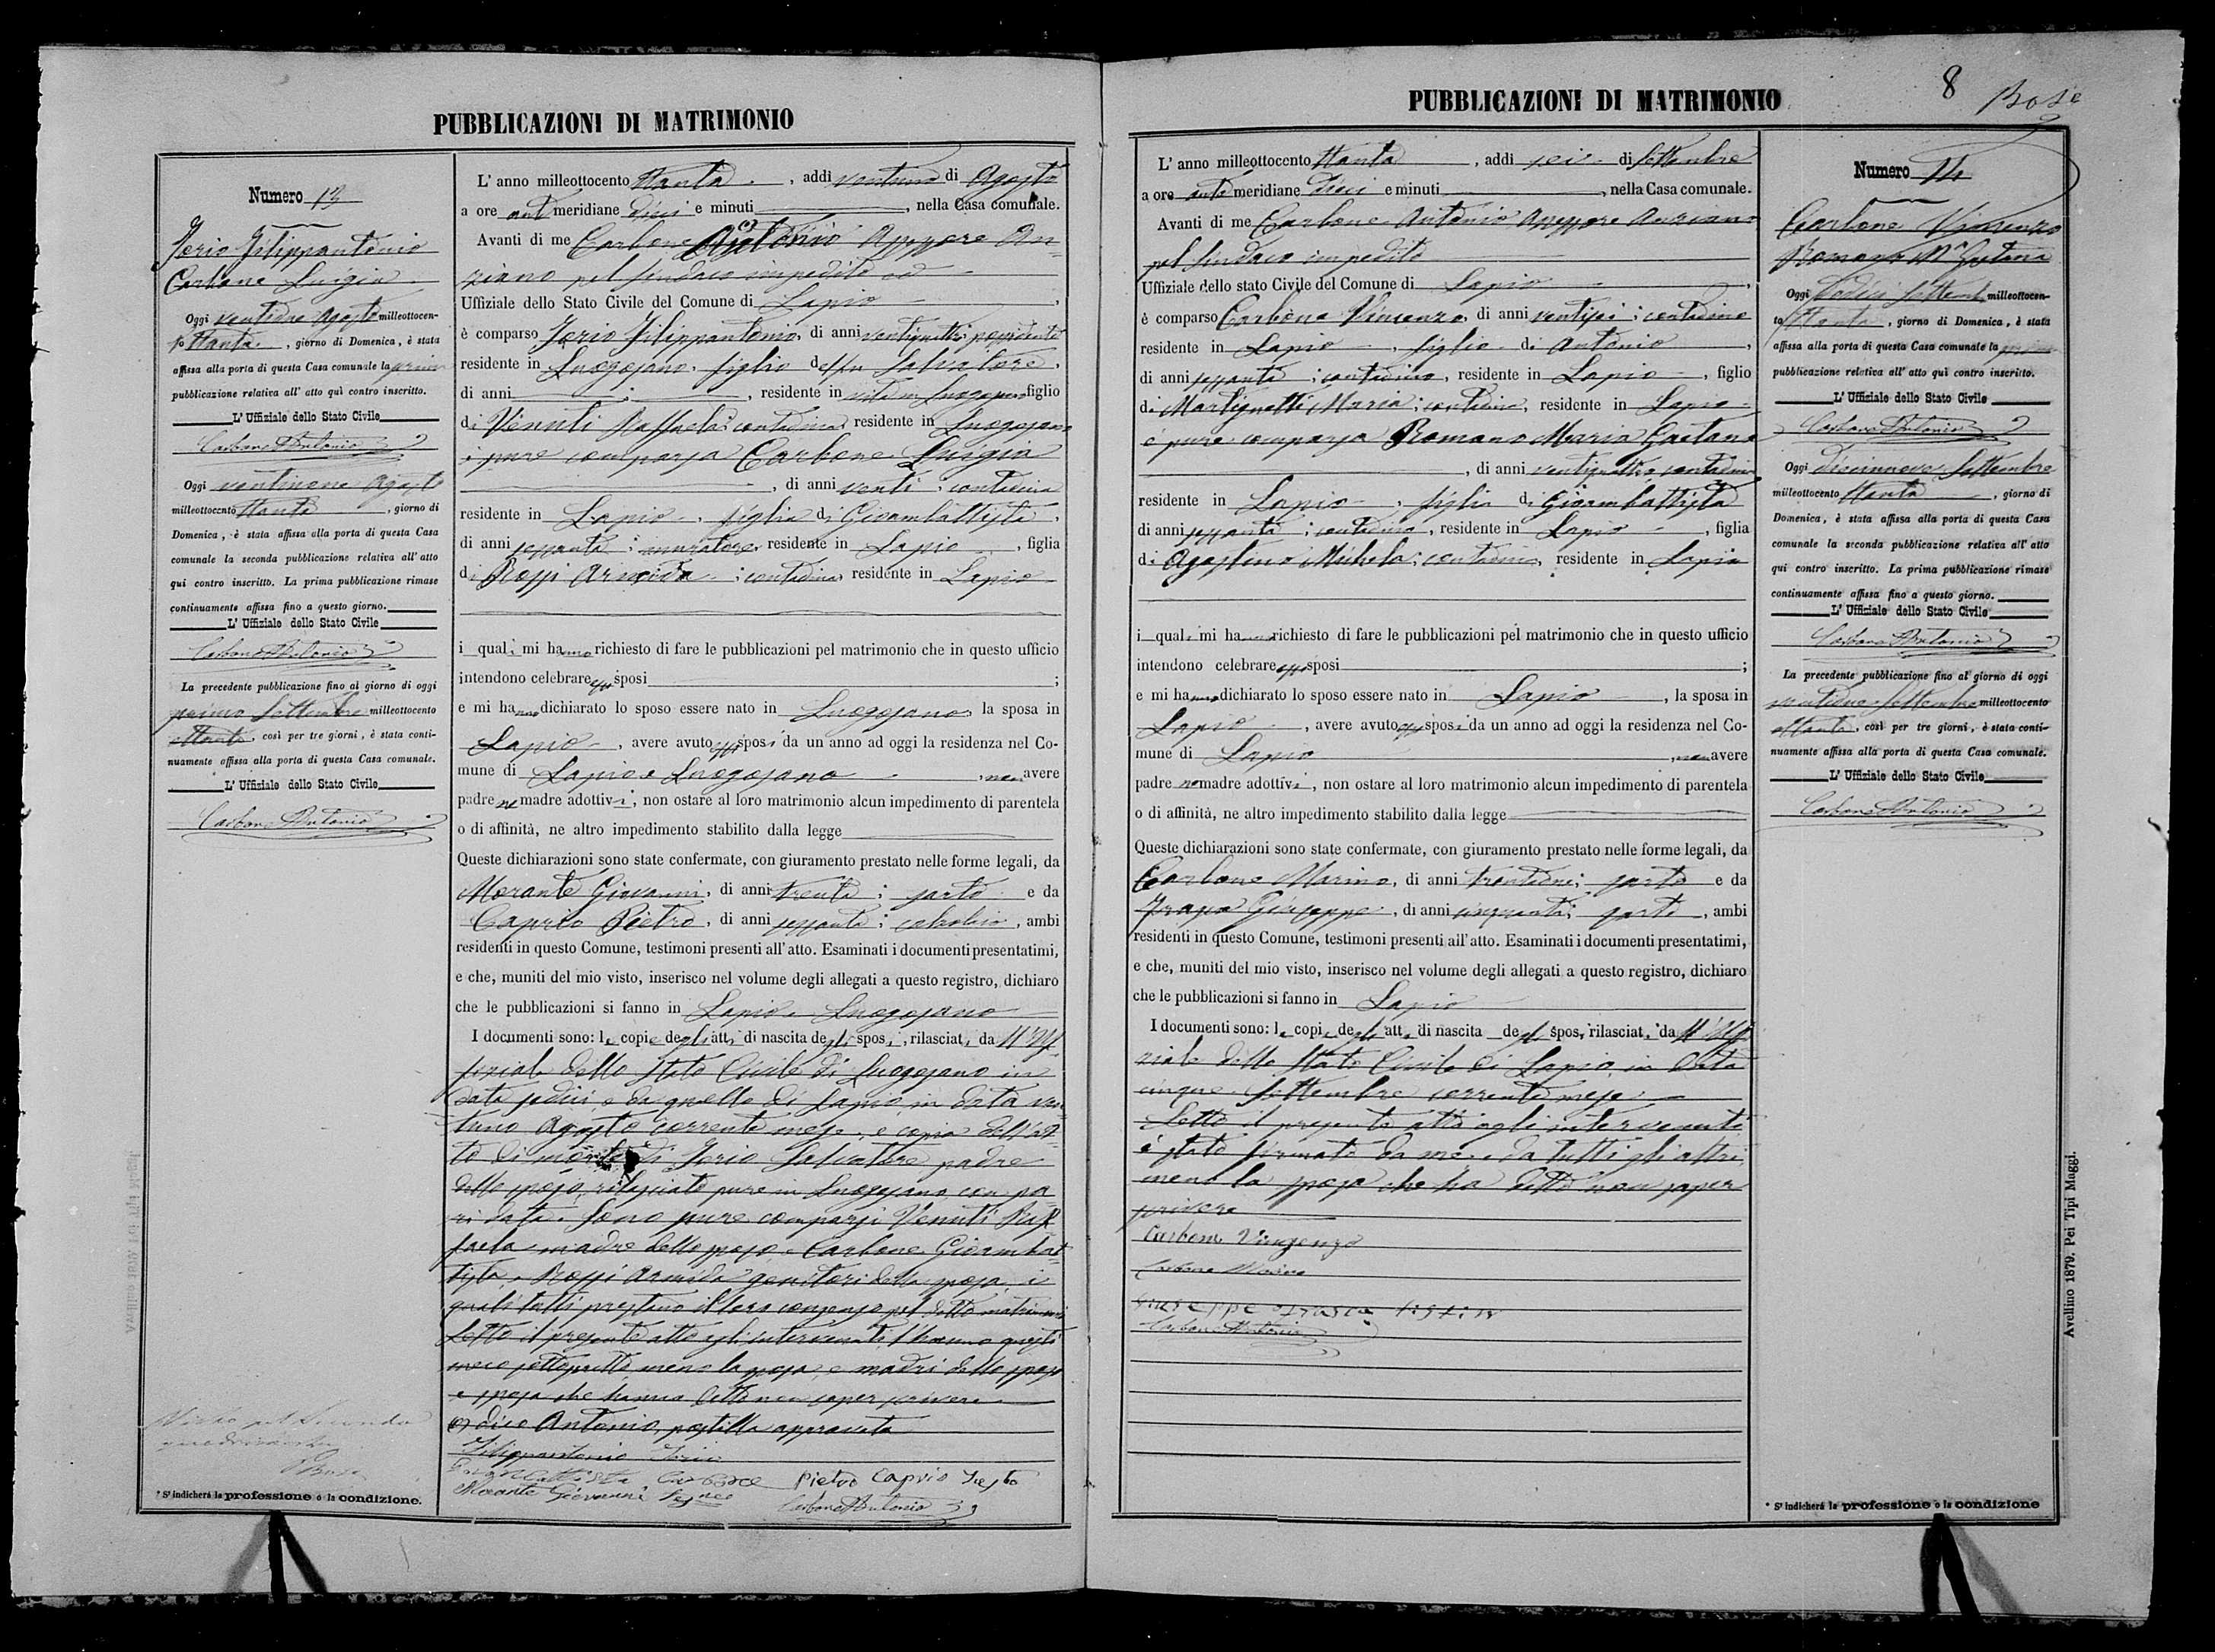 PUBBLICAZIONI DI MATRIMONIO
Numero 13
Iorio Filippantonio
Carbone Luigia
Oggi ventidue Agosto milleottocen-
to ttanta, giorno di Domenica, è stata
affissa alla porta di questa Casa comunale la prima
pubblicazione relativa all' atto quì contro inscritto.
L' Uffiziale dello Stato Civile
Carbone Antonio
Oggi ventinove Agosto
milleottocento ttanta, giorno di
Domenica, è stata affissa alla porta di questa Casa
comunale la seconda pubblicazione relativa all' atto
qui contro inscritto. La prima pubblicazione rimase
continuamente affissa fino a questo giorno.
L' Uffiziale dello Stato Civile
Carbone Antonio
La precedente pubblicazione fino al giorno di oggi
primo Settembre milleottocento
ottanta, così per tre giorni, è stata conti-
nuamente affissa alla porta di questa Casa comunale.
L' Uffiziale dello Stato Civile
Carbone Antonio
* Si indicherà la professione o la condizione.
L' anno milleottocento ttanta, addì ventuno di Agosto
a ore ant meridiane dieci e minuti , nella Casa comunale.
Avanti di me Carbone Antonio Assessore An-
ziano pel Sindaco impedito
Uffiziale dello Stato Civile del Comune di Lapio,
è comparso Iorio Filippantonio, di anni ventiquattro; possidente
residente in Luogosano, figlio del fu Salvatore,
di anni ; , residente in vita in Luogosano figlio
di Venuti Raffaela; contadina, residente in Luogosano
è pure comparsa Carbone Luigia
, di anni venti; contadina
residente in Lapio, figlia di Giovambattista,
di anni sessanta; muratore, residente in Lapio, figlia
di Rossi Armida; contadina, residente in Lapio
i quali mi hanno richiesto di fare le pubblicazioni pel matrimonio che in questo ufficio
intendono celebrare essi sposi ;
e mi hanno dichiarato lo sposo essere nato in Luogosano, la sposa in
Lapio, avere avuto essi sposi da un anno ad oggi la residenza nel Co-
mune di Lapio e Luogosano, non avere
padre ne madre adottivi, non ostare al loro matrimonio alcun impedimento di parentela
o di affinità, ne altro impedimento stabilito dalla legge
Queste dichiarazioni sono state confermate, con giuramento prestato nelle forme legali, da
Morante Giovanni, di anni trenta; sarto e da
Caprio Pietro, di anni sessanta; calzolaio, ambi
residenti in questo Comune, testimoni presenti all' atto. Esaminati i documenti presentatimi,
e che, muniti del mio visto, inserisco nel volume degli allegati a questo registro, dichiaro
che le pubblicazioni si fanno in Lapio e Luogosano
I documenti sono: le copie degli atti di nascita degli sposi, rilasciati da ll' Uf-
fiziale dello Stato Civile di Luogosano in
data sedici, e da quello di Lapio in data ven-
tuno Agosto corrente mese, e copia dell' at-
to di morte di Iorio Salvatore padre
dello sposo, rilasciato pure in Luogosano con pa-
ri data. Sono pure comparsi Venuti Raf-
faela madre dello sposo e Carbone Giovambat-
tista, e Rossi Armida genitori della sposa, i
quali tutti prestano il loro consenso pel detto matrimonio
Letto il presente atto agli intervenuti, l'hanno questi
meco sottoscritto, meno la sposa, e madri dello sposo
e sposa che hanno detto non saper scrivere
dico Antonio, postilla approvata
Filippantonio Iorio
Giovanbattista Carbone Pietro Caprio Testo
Morante Giovanni
Carbone Antonio
PUBBLICAZIONI DI MATRIMONIO
8
L' anno milleottocento ttanta, addì sei di Settembre
a ore anti meridiane dieci e minuti , nella Casa comunale.
Avanti di me Carbone Antonio Assessore Anziano
pel Sindaco impedito
Uffiziale dello stato Civile del Comune di Lapio,
è comparso Carbone Vincenzo, di anni ventisei; contadino
residente in Lapio, figlio di Antonio,
di anni sessanta; contadino, residente in Lapio, figlio
di Martignetti Maria; contadina, residente in Lapio
è pure comparsa Romano Maria Gaetana
, di anni ventiquattro, contadina
residente in Lapio, figlia di Giovambattista
di anni sessanta; contadino, residente in Lapio, figlia
di Agostino Michela; contadina, residente in Lapio
i quali mi hanno richiesto di fare le pubblicazioni pel matrimonio che in questo ufficio
intendono celebrare essi sposi ;
e mi hanno dichiarato lo sposo essere nato in Lapio, la sposa in
Lapio, avere avuto essi sposi da un anno ad oggi la residenza nel Co-
mune di Lapio, non avere
padre ne madre adottivi, non ostare al loro matrimonio alcun impedimento di parentela
o di affinità, ne altro impedimento stabilito dalla legge
Queste dichiarazioni sono state confermate, con giuramento prestato nelle forme legali, da
Carbone Marino, di anni trentadue; sarto e da
Frasca Giuseppe, di anni cinquanta; sarto, ambi
residenti in questo Comune, testimoni presenti all' atto. Esaminati i documenti presentatimi,
e che, muniti del mio visto, inserisco nel volume degli allegati a questo registro, dichiaro
che le pubblicazioni si fanno in Lapio
I documenti sono: le copie degli atti di nascita degli sposi, rilasciati da ll' Uffi-
ziale dello Stato Civile di Lapio, in data
cinque Settembre corrente mese.
Letto il presente atto agli intervenuti
è stato firmato da me e da tutti gli altri,
meno la sposa che ha detto non saper
scrivere
Carbone Vingenzo
Carbone Marino
Giuseppe Frasca
Carbone Antonio
Numero 14
Carbone Vincenzo
Romano Ma Gaetana
Oggi dodici Settembre milleottocen-
to ttanta, giorno di Domenica, è stata
affissa alla porta di questa Casa comunale la prima
pubblicazione relativa all' atto qui contro inscritto.
L' Uffiziale dello Stato Civile
Carbone Antonio
Oggi diciannove Settembre
milleottocento ttanta, giorno di
Domenica, è stata affissa alla porta di questa Casa
comunale la seconda pubblicazione relativa all' atto
qui contro inscritto. La prima pubblicazione rimase
continuamente affissa fino a questo giorno.
L' Uffiziale dello Stato Civile
Carbone Antonio
La precedente pubblicazione fino al giorno di oggi
ventidue Settembre milleottocento
ottanta, così per tre giorni, è stata conti-
nuamente affissa alla porta di questa Casa comunale.
L' Uffiziale dello Stato Civile
Carbone Antonio
* Si indicherà la professione o la condizione
Avellino 1879. Pei Tipi Maggi.